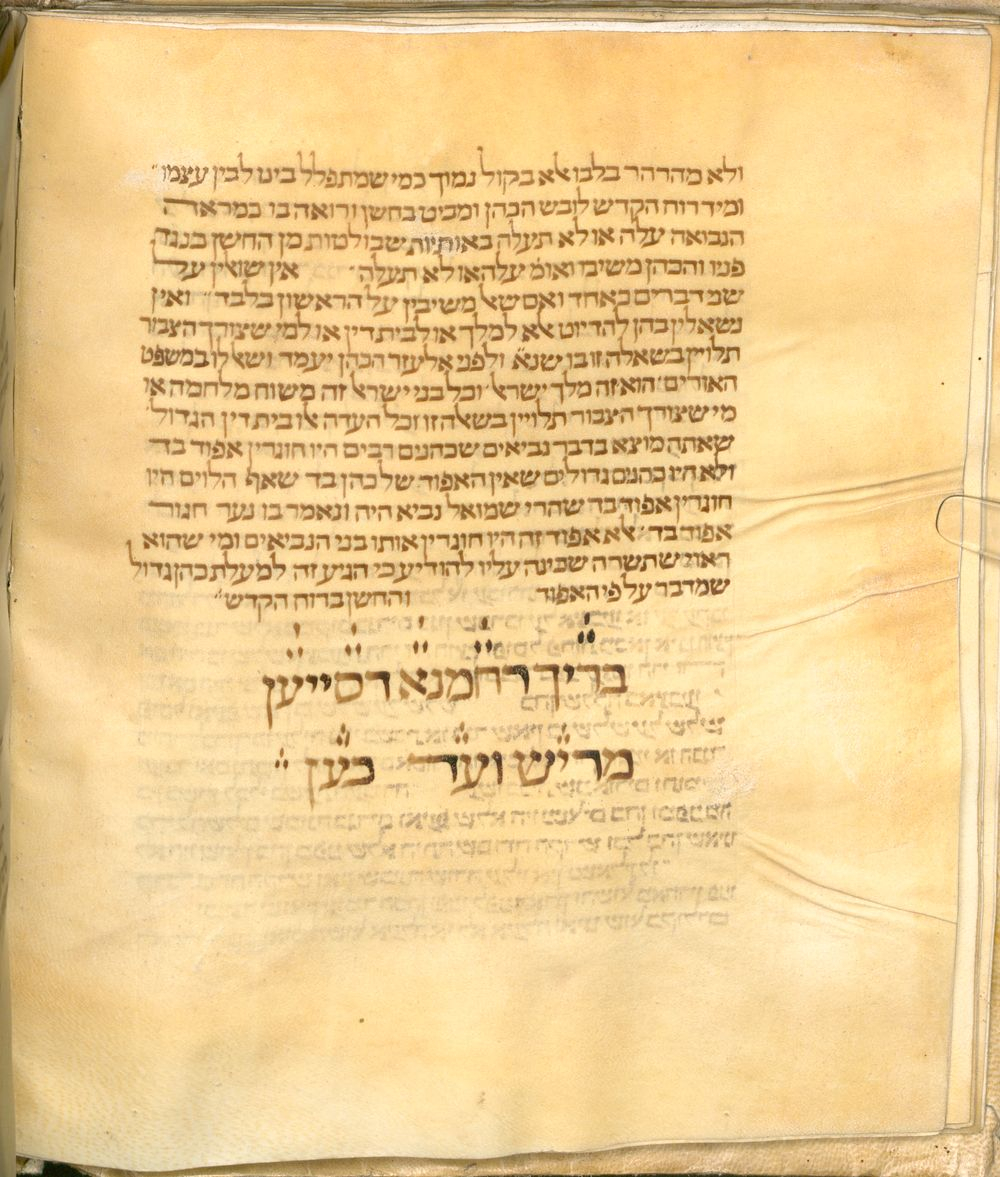 ולא מהרהר בלבו אלא בקול נמוך כמי שמתפלל בינו לבין עצמו
ומיד רוח הקדש לובש הכהן ומביט בחשן ורואה בו במראה
הנבואה עלה או לא תעלה באותיות שבולטות מן החשן בנגד
פניו והכהן משיבו ואומ' עלה או לא תעלה אין שואלין על
שני דברים כאחד ואם שאל משיבין על הראשון בלבד ואין
נשאלין בהן להדיוט אלא למלך או לבית דין או למי שצורך הצבור
תלויין בשאלה זו בו שנא' ולפני אליעזר הכהן יעמד ושאל לו במשפט
האורים הוא זה מלך ישראל וכל בני ישראל זה משוח מלחמה או
מי שצורך הצבור תלויין בשאלה זו וכל העדה אלו בית דין הגדול
שאתה מוצא בדברי נביאים שכהנים רבים היו חוגרין אפוד בד
ולא היו כהנים גדולים שאין האפוד של כהן בד שאף הלוים היו
חוגרין אפוד בד שהרי שמואל נביא היה ונאמר בו נער חגור
אפוד בד אלא אפוד זה היו חוגרין אותו בני הנביאים ומי שהוא
ראוי שתשרה שכינה עליו להודיע כי הגיע זה למעלת כהן גדול
שמדבר על פי האפוד והחשן ברוח הקדש
בריך רחמנא דסייען
מריש ועד כען